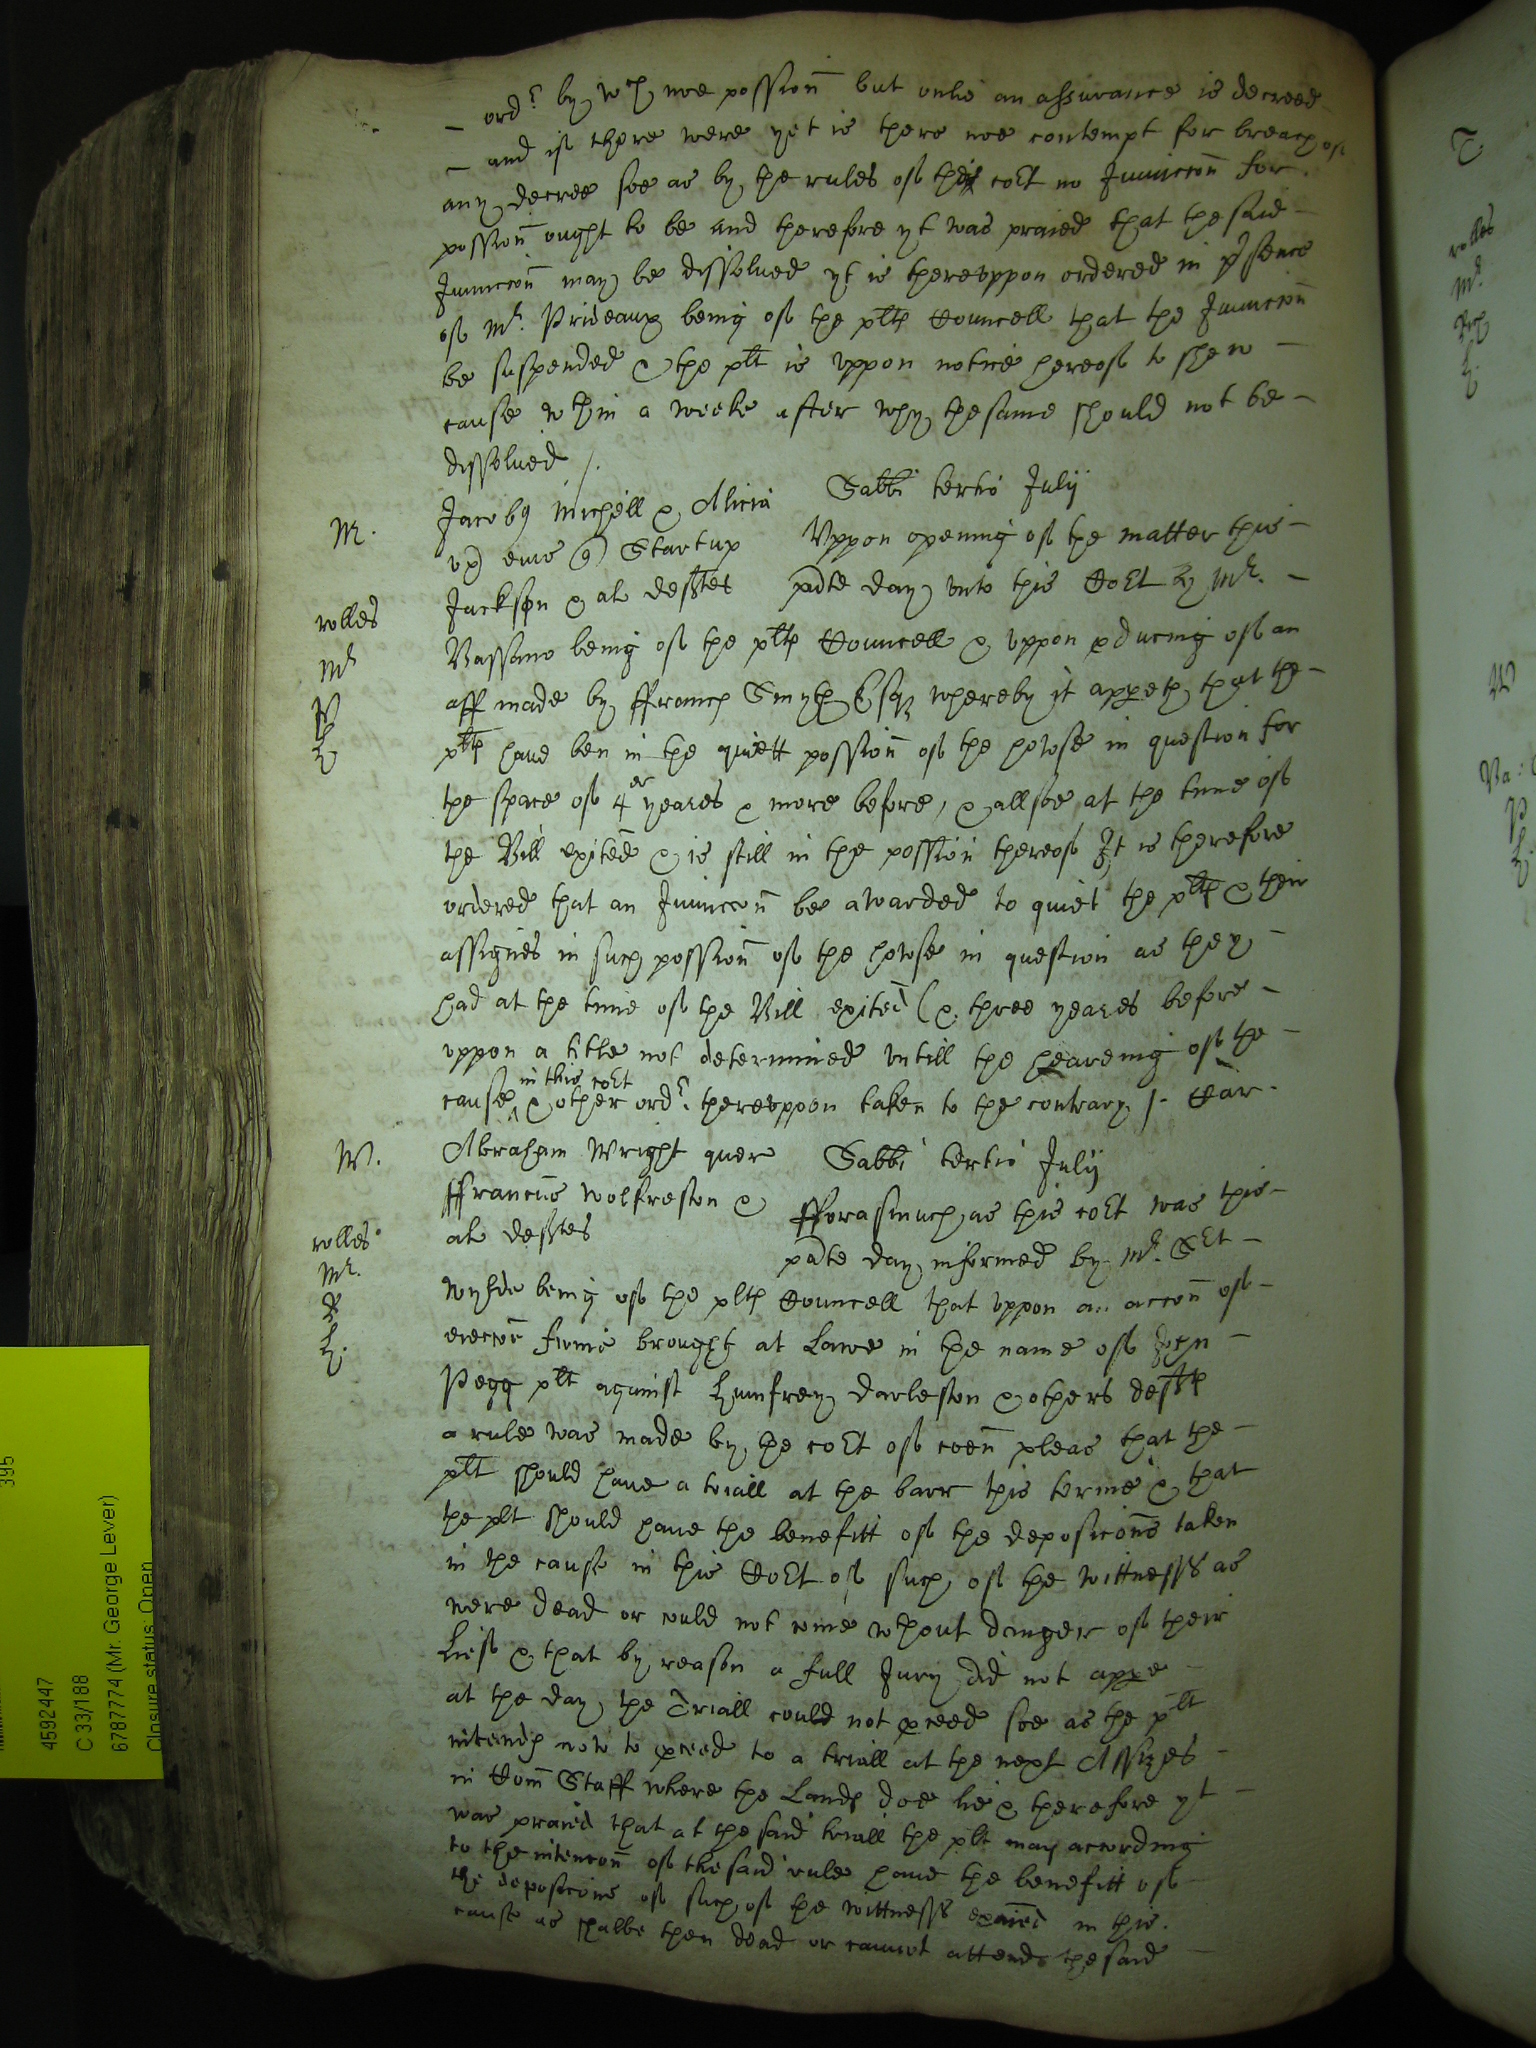 ordr by wch noe possion but onlie an assurance is decreed
and if there were yet is there noe contempt for breach of
any decree soe as by the rules of this cort no Iniuccon for
possion ought to be and therefore yt was praied that the said
Iniuccon may be dissolued yt is therevppon ordered in pssence
of Mr. Prideaux being of the plts Councell that the Iniuccon
be suspended & the plt is vppon notice hereof to shew
cause wthin a weeke after why the same should not be
dissolued /.
M.
Jacobus Michell & Alicia
vx eius Startup
Jackson & al deftes
Sabbi tertio Julij
Vppon opening of the matter this
pnte day vnto this Cort by Mr.
rolles
Mr
P
h
Vassano being of the plts Councell & vppon pducing of an
aff made by ffrancis Smyth Esqr whereby it appeth that the
plts haue ben in the quiett possion of the howse in question for
the space of 4er yeares & more before, & allsoe at the time of
the Bill exited & is still in the possion thereof It is therefore
ordered that an Iniuccon be awarded to quiet the plts & their
assignes in such possion of the howse in question as they
had at the time of the Bill exited & three yeares before
vppon a title not determined vntill the heareing of the
in this cort
cause & other ordr. therevppon taken to the contrary /. Car.
W.
Abraham Wright quer
ffranciis Wolfreston &
al deftes
Sabbi tertio Julij
fforasmuch as this cort was this
pnte day informed by Mr. Sert
rolles
Mr.
h.
Wylde being of the plts Councell that vppon an accon of
eieccon firmie brought at Lawe in the name of John
Pegg plt against Humfrey Darleston & others defts
a rule was made by the cort of coen pleas that the
plt should haue a triall at the barr this terme & that
the plt should haue the benefitt of the deposicons taken
in the cause in this Cort of such of the wittnesses as
were dead or could not come wthout danger of their
Lief & that by reason a full Jury did not appe
at the day the Triall could not pceed soe as the plt
intends now to pceed to a triall at the next Assizes
in Com Staff where the Lands doe lie & therefore yt
was praied that at the said triall the plt may according
to the intencon of the said rule haue the benefitt of
the deposicons of such of the wittnesses exaied in this
cause as shalbe then dead or cannot attende the said
rolles
Mr
h
W
Va:
P
h
395
4592447
C 33/188
6787774 (Mr. George Lever)
Closure status: Open